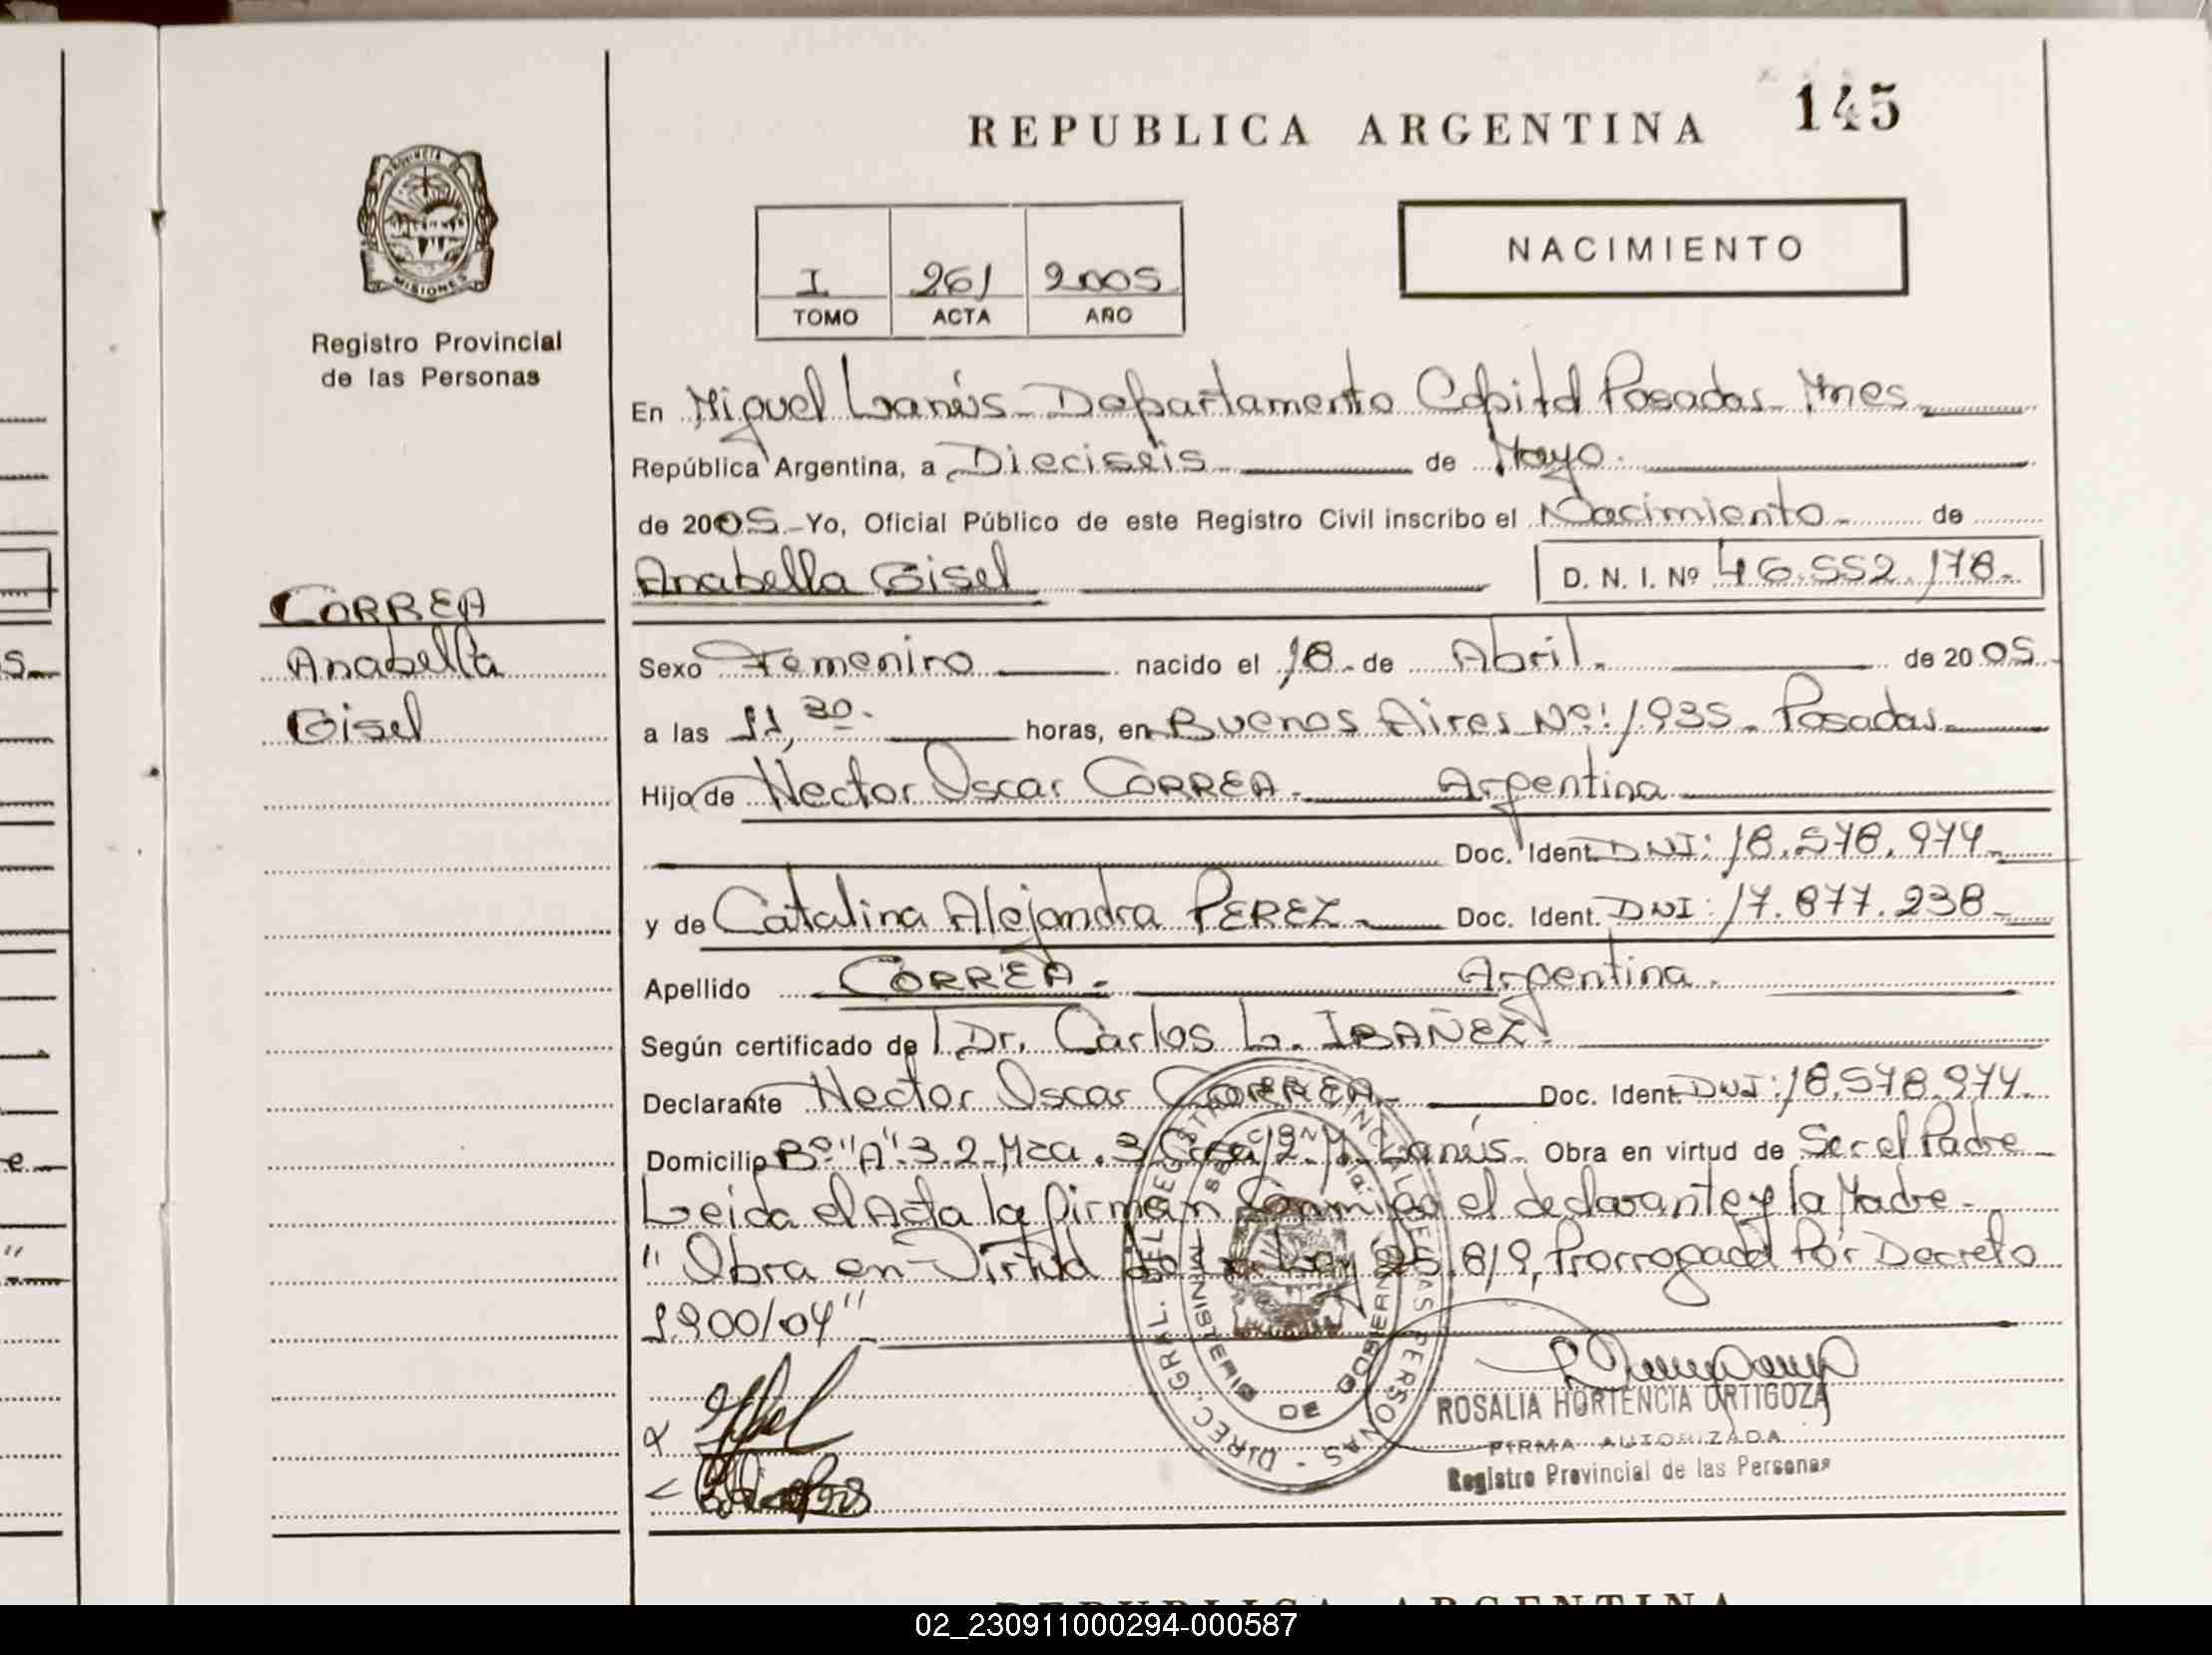 REPUBLICA ARGENTINA 145
PROVINCIA DE
MISIONES
Registro Provincial
de las Personas
I 261 2005
TOMO ACTA AÑO
NACIMIENTO
En Miguel Lanús Departamento Capital Posadas Mnes
República Argentina, a Dieciseis de Mayo.
de 2005.- Yo, Oficial Público de este Registro Civil inscribo el Nacimiento de
Anabella Gisel D. N. I. Nº 46.552.178.-
CORREA
Anabella
Gisel
Sexo Femenino nacido el 18 - de Abril. de 2005.
a las 11,30. horas, en Buenos Aires Nº: 1935 - Posadas.
Hijo de Hector Oscar CORREA - Argentina
Doc. Ident. DNI: 18.578.974
y de Catalina Alejandra PEREZ - Doc. Ident. DNI: 17.877.238
Apellido CORREA - Argentina.
Según certificado de Dr. Carlos L. IBAÑEZ.
Declarante Hector Oscar CORREA - Doc. Ident. DNI: 18.578.974.
Domicilio Bº "A" 3.2 Mza. 3 Casa 12 M. Lanús. Obra en virtud de Ser el Padre
Leida el Acta la firman Conmigo el declarante y la Madre -
"Obra en Virtud de la Ley 25.819, Prorrogada Por Decreto
1.900/04"
DIREC. GRAL. DEL REGISTRO PROVINCIAL DE LAS PERSONAS
MINISTERIO DE GOBIERNO
ROSALIA HORTENCIA ORTIGOZA
FIRMA AUTORIZADA
Registro Provincial de las Personas
REPUBLICA ARGENTINA
02_230911000294-000587